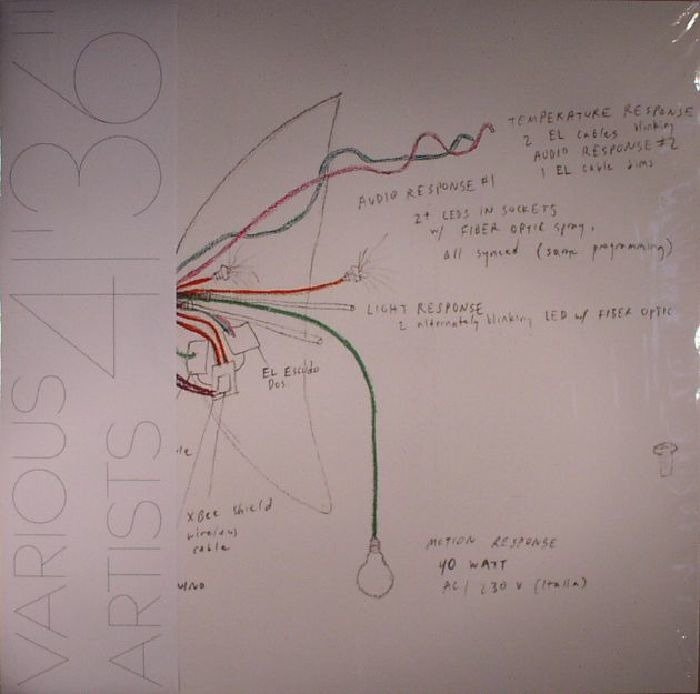 VARIOUS 4'!!!36!!
ARTISTS
TEMPERATURE RESPONSE
2 EL cables blinking
AUDIO RESPONSE #2
1 EL cable dims
AUDIO RESPONSE #1
2+ LEDS IN SOCKETS
w/ FIBER OPTIC spray,
all synced (same programming)
LIGHT RESPONSE
2 alternately blinking LED w/ FIBER OPTIC
EL Escudo
Dos
XBee Shield
wireless
cable
MOTION RESPONSE
40 WATT
AC/ 230 V (Italia)